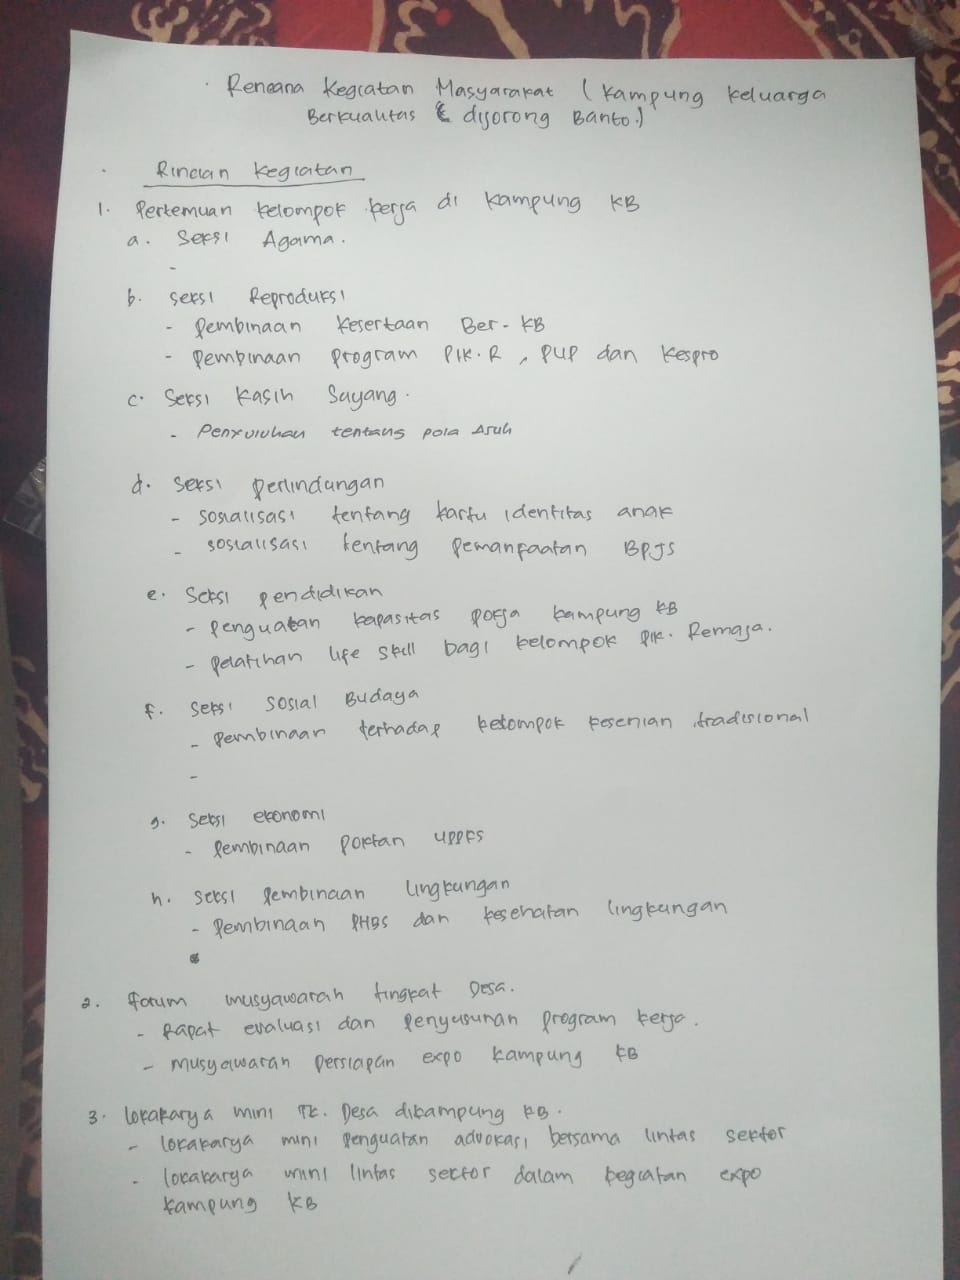 Rencana Kegiatan Masyarakat ( Kampung Keluarga
Berkualitas disorong Banto.)
Rincian Kegiatan
1. Pertemuan kelompok kerja di kampung KB
a. Seksi Agama.
-
b. Seksi Reproduksi
- Pembinaan Kesertaan Ber-KB
- Pembinaan program PIK.R, PUP dan Kespro
c. Seksi Kasih Sayang.
- Penyuluhan tentang pola Asuh
d. Seksi perlindungan
- Sosialisasi tentang kartu identitas anak
- Sosialisasi tentang pemanfaatan BPJS
e. Seksi pendidikan
- penguatan kapasitas pokja kampung KB
- pelatihan life skill bagi kelompok PIK. Remaja.
f. Seksi Sosial Budaya
- Pembinaan terhadap kelompok kesenian tradisional
-
g. Seksi ekonomi
- Pembinaan poktan UPPKS
h. Seksi Pembinaan Lingkungan
- Pembinaan PHBS dan kesehatan lingkungan
2. Forum musyawarah tingkat Desa.
- Rapat evaluasi dan penyusunan program kerja.
- Musyawarah persiapan expo kampung KB
3. Lokakarya mini Tk. Desa dikampung KB.
- Lokakarya mini penguatan advokasi bersama lintas sektor
- Lokakarya mini lintas sektor dalam kegiatan expo
kampung KB